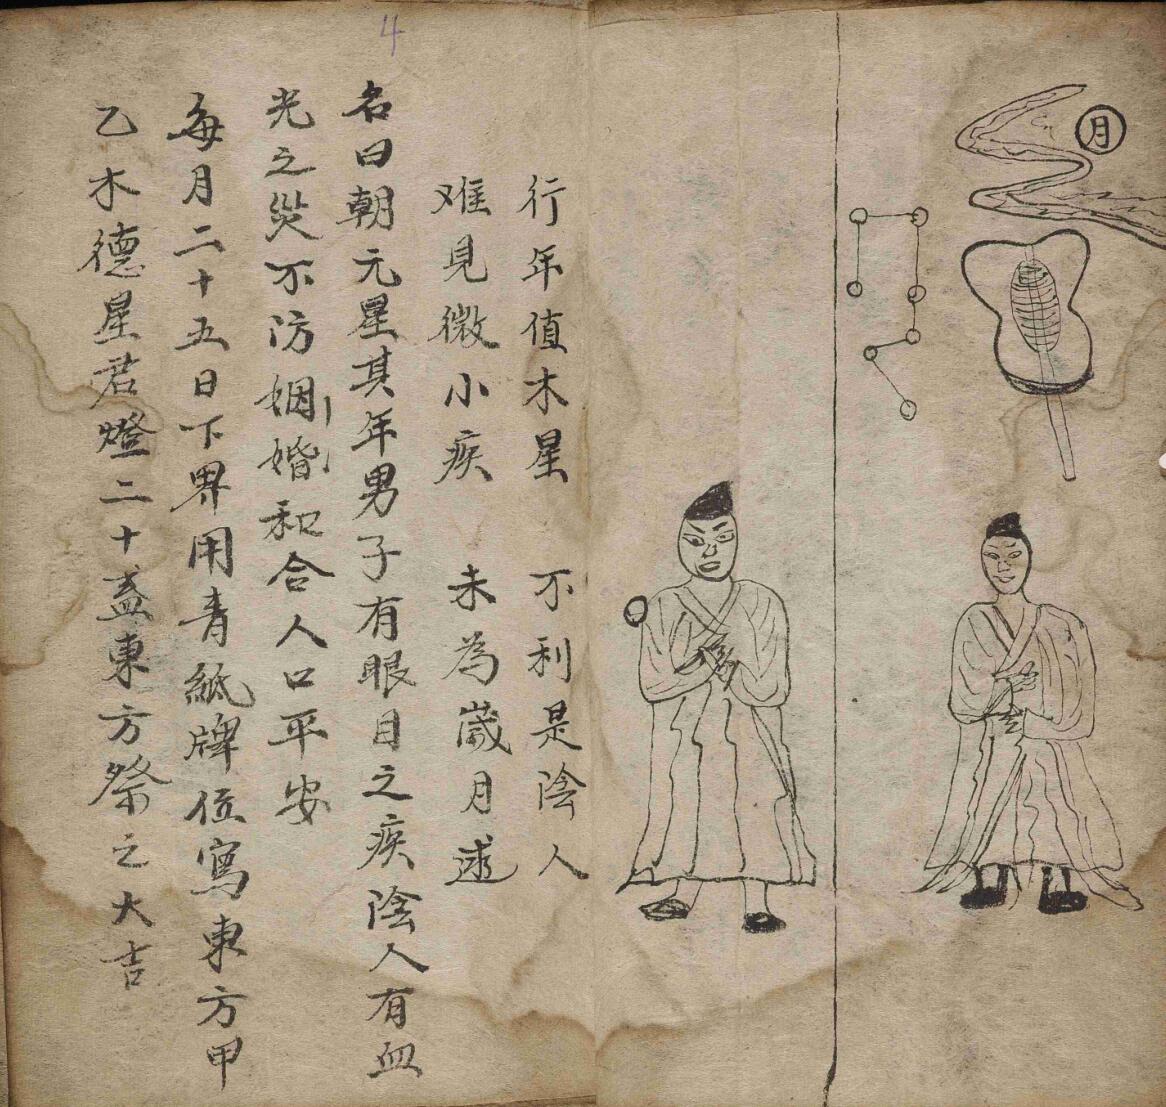 月
行年值木星 不利是陰人
难見微小疾 未為歲月逑
名曰朝元星其年男子有眼目之疾陰人有血
光之災不防姻婚和合人口平安
每月二十五日下界用青紙牌位寫東方甲
乙木德星君燈二十盞東方祭之大吉
4